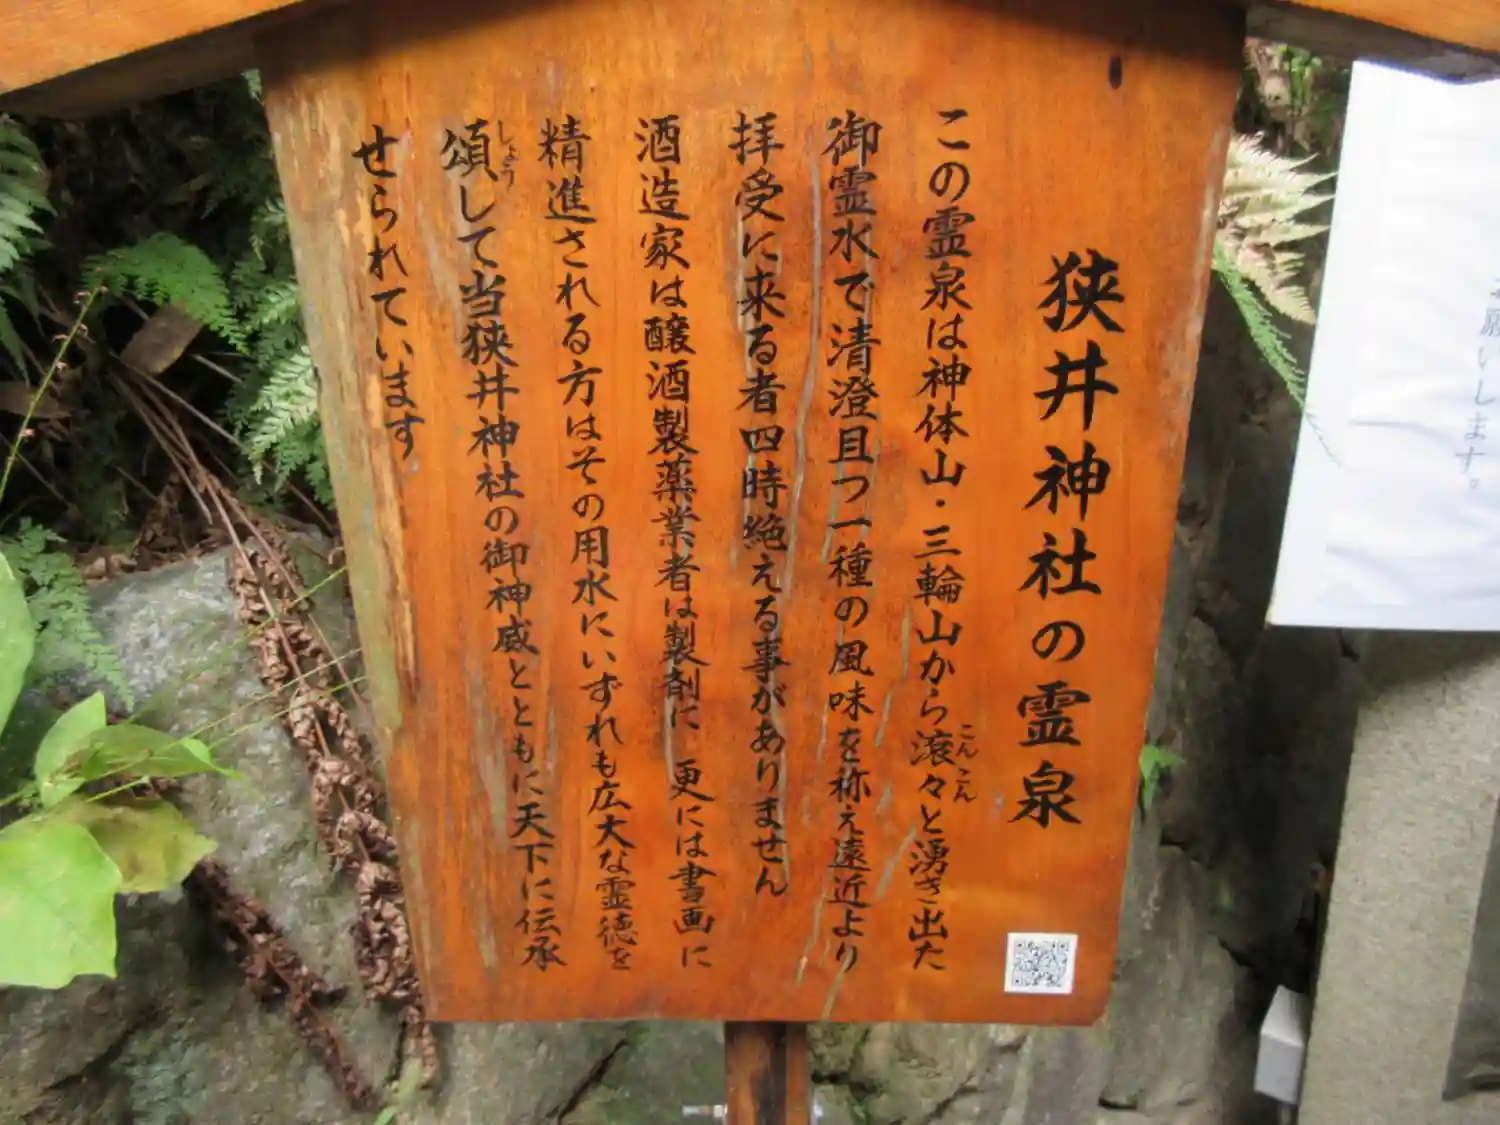 狭井神社の霊泉
この霊泉は神体山・三輪山から滾々と湧き出た
こんこん
御霊水で清澄且つ一種の風味を称え遠近より
拝受に来る者四時絶える事がありません
酒造家は醸酒製薬業者は製剤に 更には書画に
精進される方はその用水にいずれも広大な霊徳を
頌して当狭井神社の御神威とともに天下に伝承
しょう
せられています
お願いします。